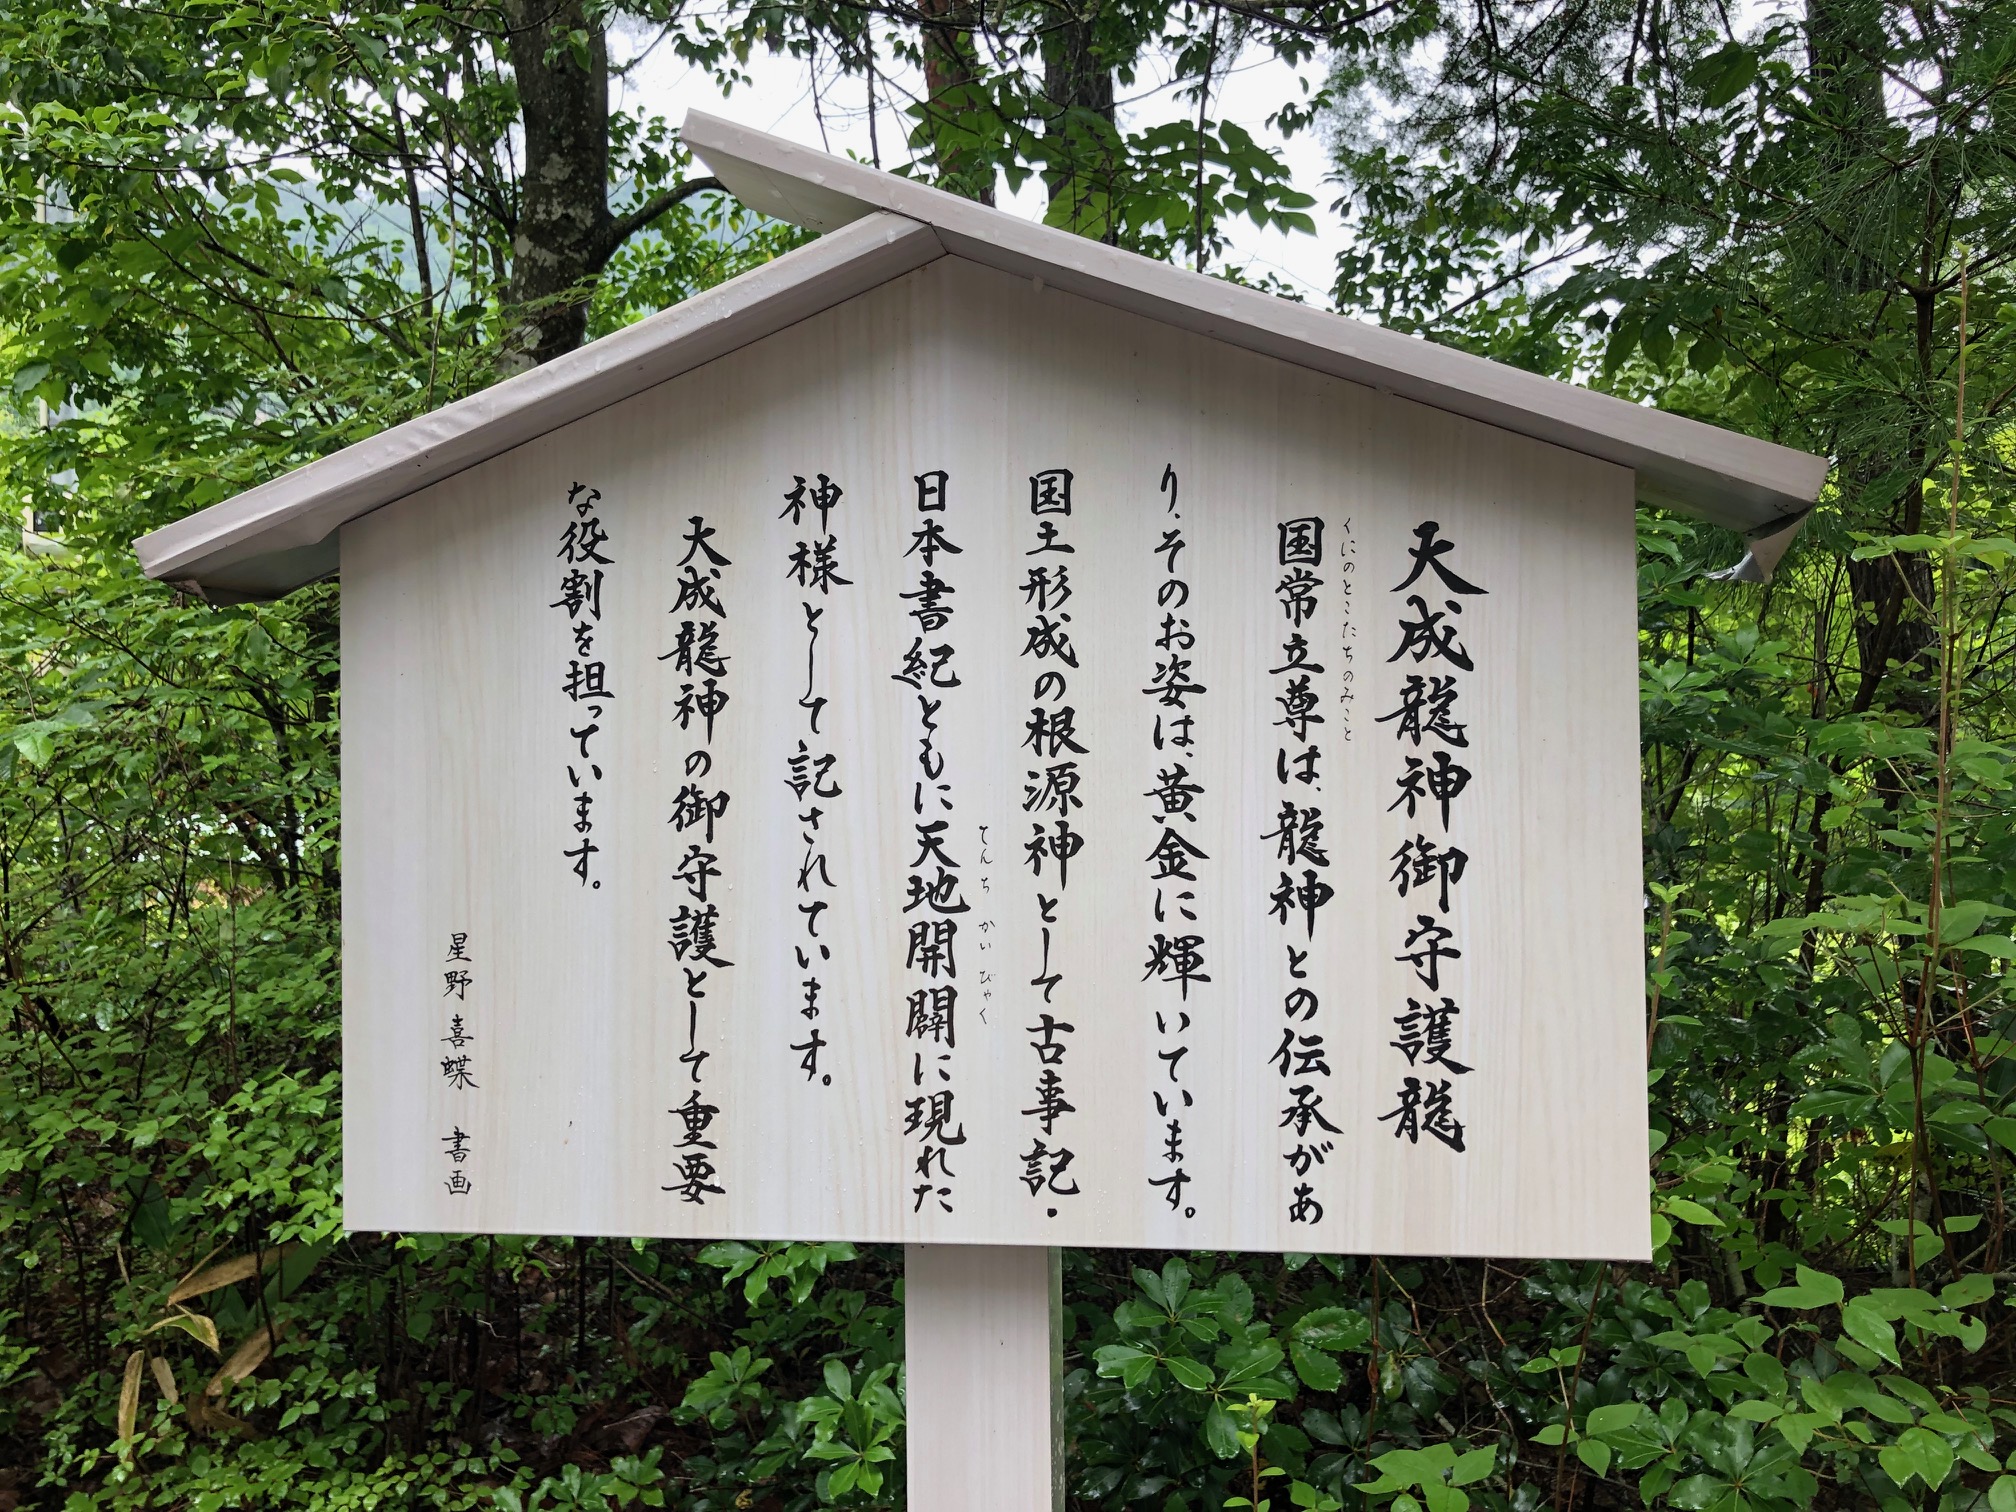 大成龍神御守護龍
くにのとこたちのみこと
国常立尊は、龍神との伝承があ
り、そのお姿は、黄金に輝いています。
国土形成の根源神として古事記・
てんちかいびゃく
日本書紀ともに天地開闢に現れた
神様として記されています。
大成龍神の御守護として重要
な役割を担っています。
星野喜蝶 書画